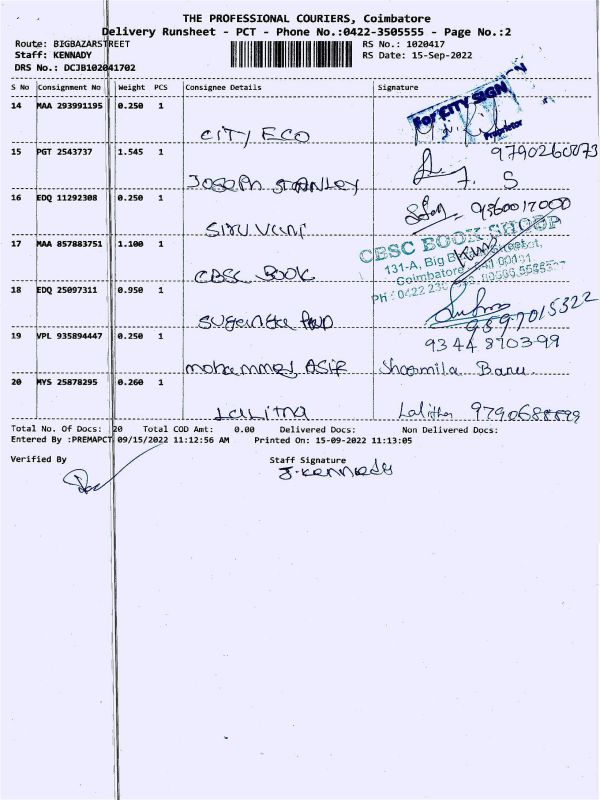 THE PROFESSIONAL COURIERS, Coimbatore
Delivery Runsheet - PCT - Phone No.:0422-3505555 - Page No.:2
Route: BIGBAZARSTREET RS No.: 1020417
Staff: KENNADY RS Date: 15-Sep-2022
DRS No.: DCJB102041702
S No Consignment No Weight PCS Consignee Details Signature
14 MAA 293991195 0.250 1
For CITY SIGN
CITY ECO Proprietor
15 PGT 2543737 1.545 1 9790260073
JOSEPH STANLEY J. S
16 EDQ 11292308 0.250 1 9360017000
SIRUVANI
17 MAA 857883751 1.100 1 CBSC BOOK SHOPP
131-A, Big
CBSC BOOK Coimbatore
Ph : 0422
18 EDQ 25097311 0.950 1
9597015322
19 VPL 935894447 0.250 1 93 44 870399
mohammed ASIF Sharmila Banu
20 MYS 25878295 0.260 1
LaLITHA Lalitha
Total No. Of Docs: 20 Total COD Amt: 0.00 Delivered Docs: Non Delivered Docs:
Entered By :PREMAPCT 09/15/2022 11:12:56 AM Printed On: 15-09-2022 11:13:05
Verified By Staff Signature
J. Kennady